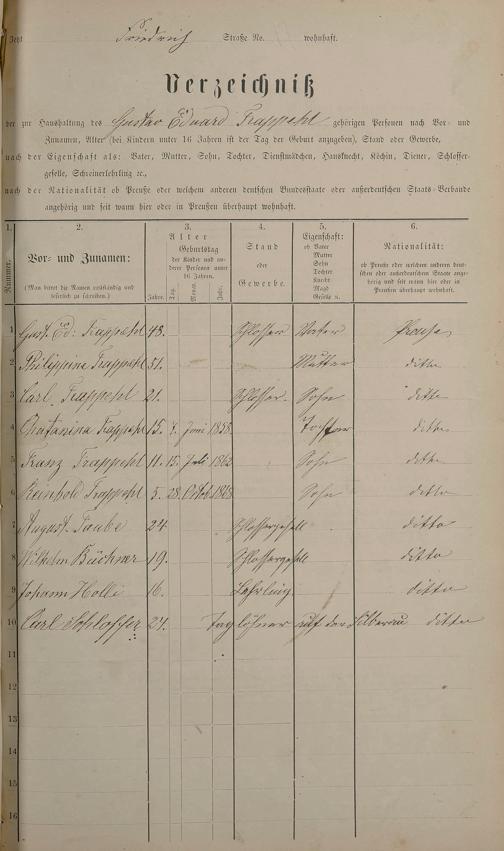 Jetzt Friedrich Straße No. wohnhaft.
Verzeichniß
der zur Haushaltung des Gustav Eduard Trappehl gehörigen Personen nach Vor- und
Zunamen, Alter (bei Kindern unter 16 Jahren ist der Tag der Geburt anzugeben), Stand oder Gewerbe,
nach der Eigenschaft als: Vater, Mutter, Sohn, Tochter, Dienstmädchen, Hausknecht, Köchin, Diener, Schlosser-
geselle, Schreinerlehrling ec.,
nach der Nationalität ob Preuße oder welchem anderen deutschen Bundesstaate oder außerdeutschen Staats-Verbande
angehörig und seit wann hier oder in Preußen überhaupt wohnhaft.
1. 2. 3. 4. 5. 6.
Nummer. Vor- und Zunamen: (Man bittet die Namen vollständig und leserlich zu schreiben.) Alter Geburtstag der Kinder und anderer Personen unter 16 Jahren. Jahre. Tag. Monat. Jahr. Stand oder Gewerbe. Eigenschaft: ob Vater Mutter Sohn Tochter Knecht Magd Geselle u. Nationalität: ob Preuße oder welchem anderen deutschen oder außerdeutschen Staate angehörig und seit wann hier oder in Preußen überhaupt wohnhaft.
1 Gust. Ed: Trappehl 43. Schlosser Vater Preuße
2 Philippine Trappehl 51. Mutter ditto
3 Carl Trappehl 21. Schlosser. Sohn ditto
4 Trappehl 15. 7. Juni 1855 Tochter ditto
5 Franz Trappehl 11. 15. Juli 1862 Sohn ditto
6 Reinhold Trappehl 5. 28. Octob. 1868 Sohn ditto
7 August Taube 24 Schlossergesell ditto
8 Wilhelm Büchner 19. Schlossergesell ditto
9 Johann Holli 16. Lehrling. ditto
10 Carl Schlosser 27. Tag löhner auf der Silberau ditto
11
12
13
14
15
16